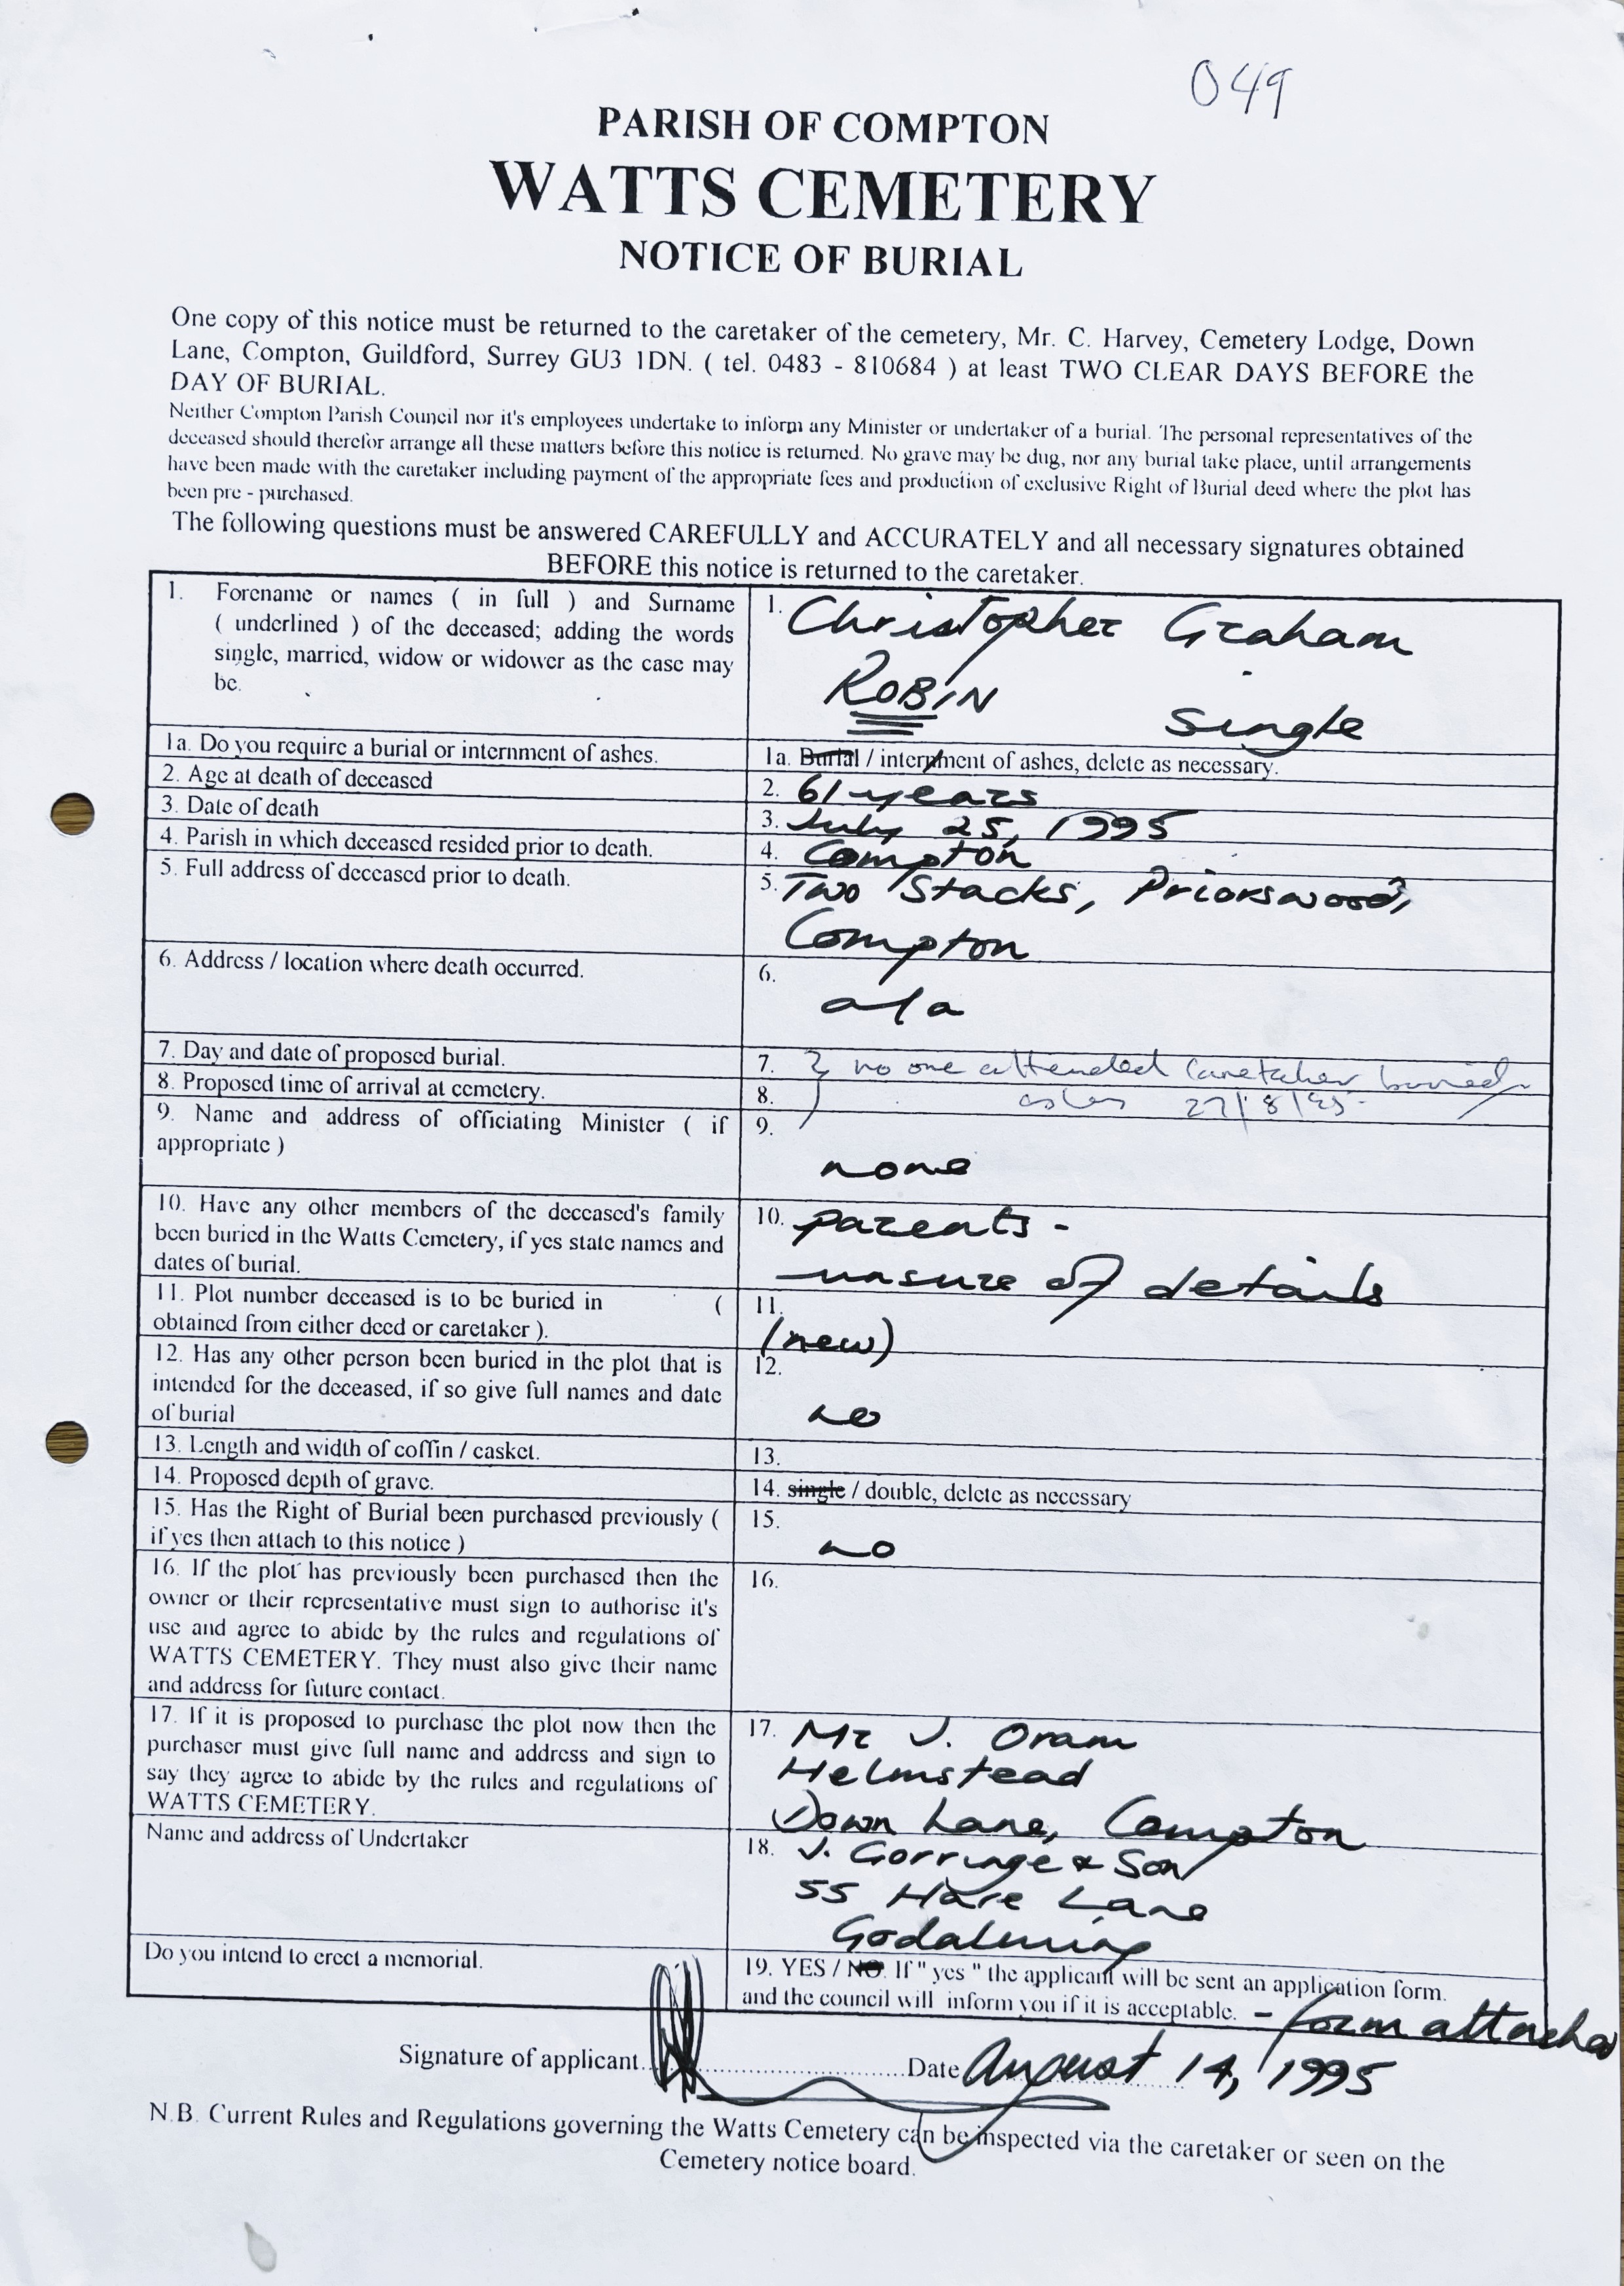 049
PARISH OF COMPTON
WATTS CEMETERY
NOTICE OF BURIAL
One copy of this notice must be returned to the caretaker of the cemetery, Mr. C. Harvey, Cemetery Lodge, Down
Lane, Compton, Guildford, Surrey GU3 1DN. ( tel. 0483 - 810684 ) at least TWO CLEAR DAYS BEFORE the
DAY OF BURIAL.
Neither Compton Parish Council nor it's employees undertake to inform any Minister or undertaker of a burial. The personal representatives of the
deceased should therefor arrange all these matters before this notice is returned. No grave may be dug, nor any burial take place, until arrangements
have been made with the caretaker including payment of the appropriate fees and production of exclusive Right of Burial deed where the plot has
been pre - purchased.
The following questions must be answered CAREFULLY and ACCURATELY and all necessary signatures obtained
BEFORE this notice is returned to the caretaker.
1. Forename or names ( in full ) and Surname
( underlined ) of the deceased; adding the words
single, married, widow or widower as the case may
be.
1. Christopher Graham
ROBIN single
1a. Do you require a burial or internment of ashes.
1a. Burial / internment of ashes, delete as necessary.
2. Age at death of deceased
2. 61 years
3. Date of death
3. July 25, 1995
4. Parish in which deceased resided prior to death.
4. Compton
5. Full address of deceased prior to death.
5. Two Stacks, Priorswood,
Compton
6. Address / location where death occurred.
6.
a/a
7. Day and date of proposed burial.
7. } no one attended Caretaker buried
8. Proposed time of arrival at cemetery.
8. ashes 27/8/95.
9. Name and address of officiating Minister ( if
appropriate )
9.
none
10. Have any other members of the deceased's family
been buried in the Watts Cemetery, if yes state names and
dates of burial.
10. parents -
unsure of details
11. Plot number deceased is to be buried in (
obtained from either deed or caretaker ).
11.
(new)
12. Has any other person been buried in the plot that is
intended for the deceased, if so give full names and date
of burial
12.
no
13. Length and width of coffin / casket.
13.
14. Proposed depth of grave.
14. single / double, delete as necessary
15. Has the Right of Burial been purchased previously (
if yes then attach to this notice )
15.
no
16. If the plot has previously been purchased then the
owner or their representative must sign to authorise it's
use and agree to abide by the rules and regulations of
WATTS CEMETERY. They must also give their name
and address for future contact.
16.
17. If it is proposed to purchase the plot now then the
purchaser must give full name and address and sign to
say they agree to abide by the rules and regulations of
WATTS CEMETERY.
17. Mr J. Oram
Helmstead
Down Lane, Compton
Name and address of Undertaker
18. J. Gorringe & Son
55 Hare Lane
Godalming
Do you intend to erect a memorial.
19. YES / NO. If " yes " the applicant will be sent an application form.
and the council will inform you if it is acceptable. - form attached
Signature of applicant.....Date August 14, 1995
N.B. Current Rules and Regulations governing the Watts Cemetery can be inspected via the caretaker or seen on the
Cemetery notice board.